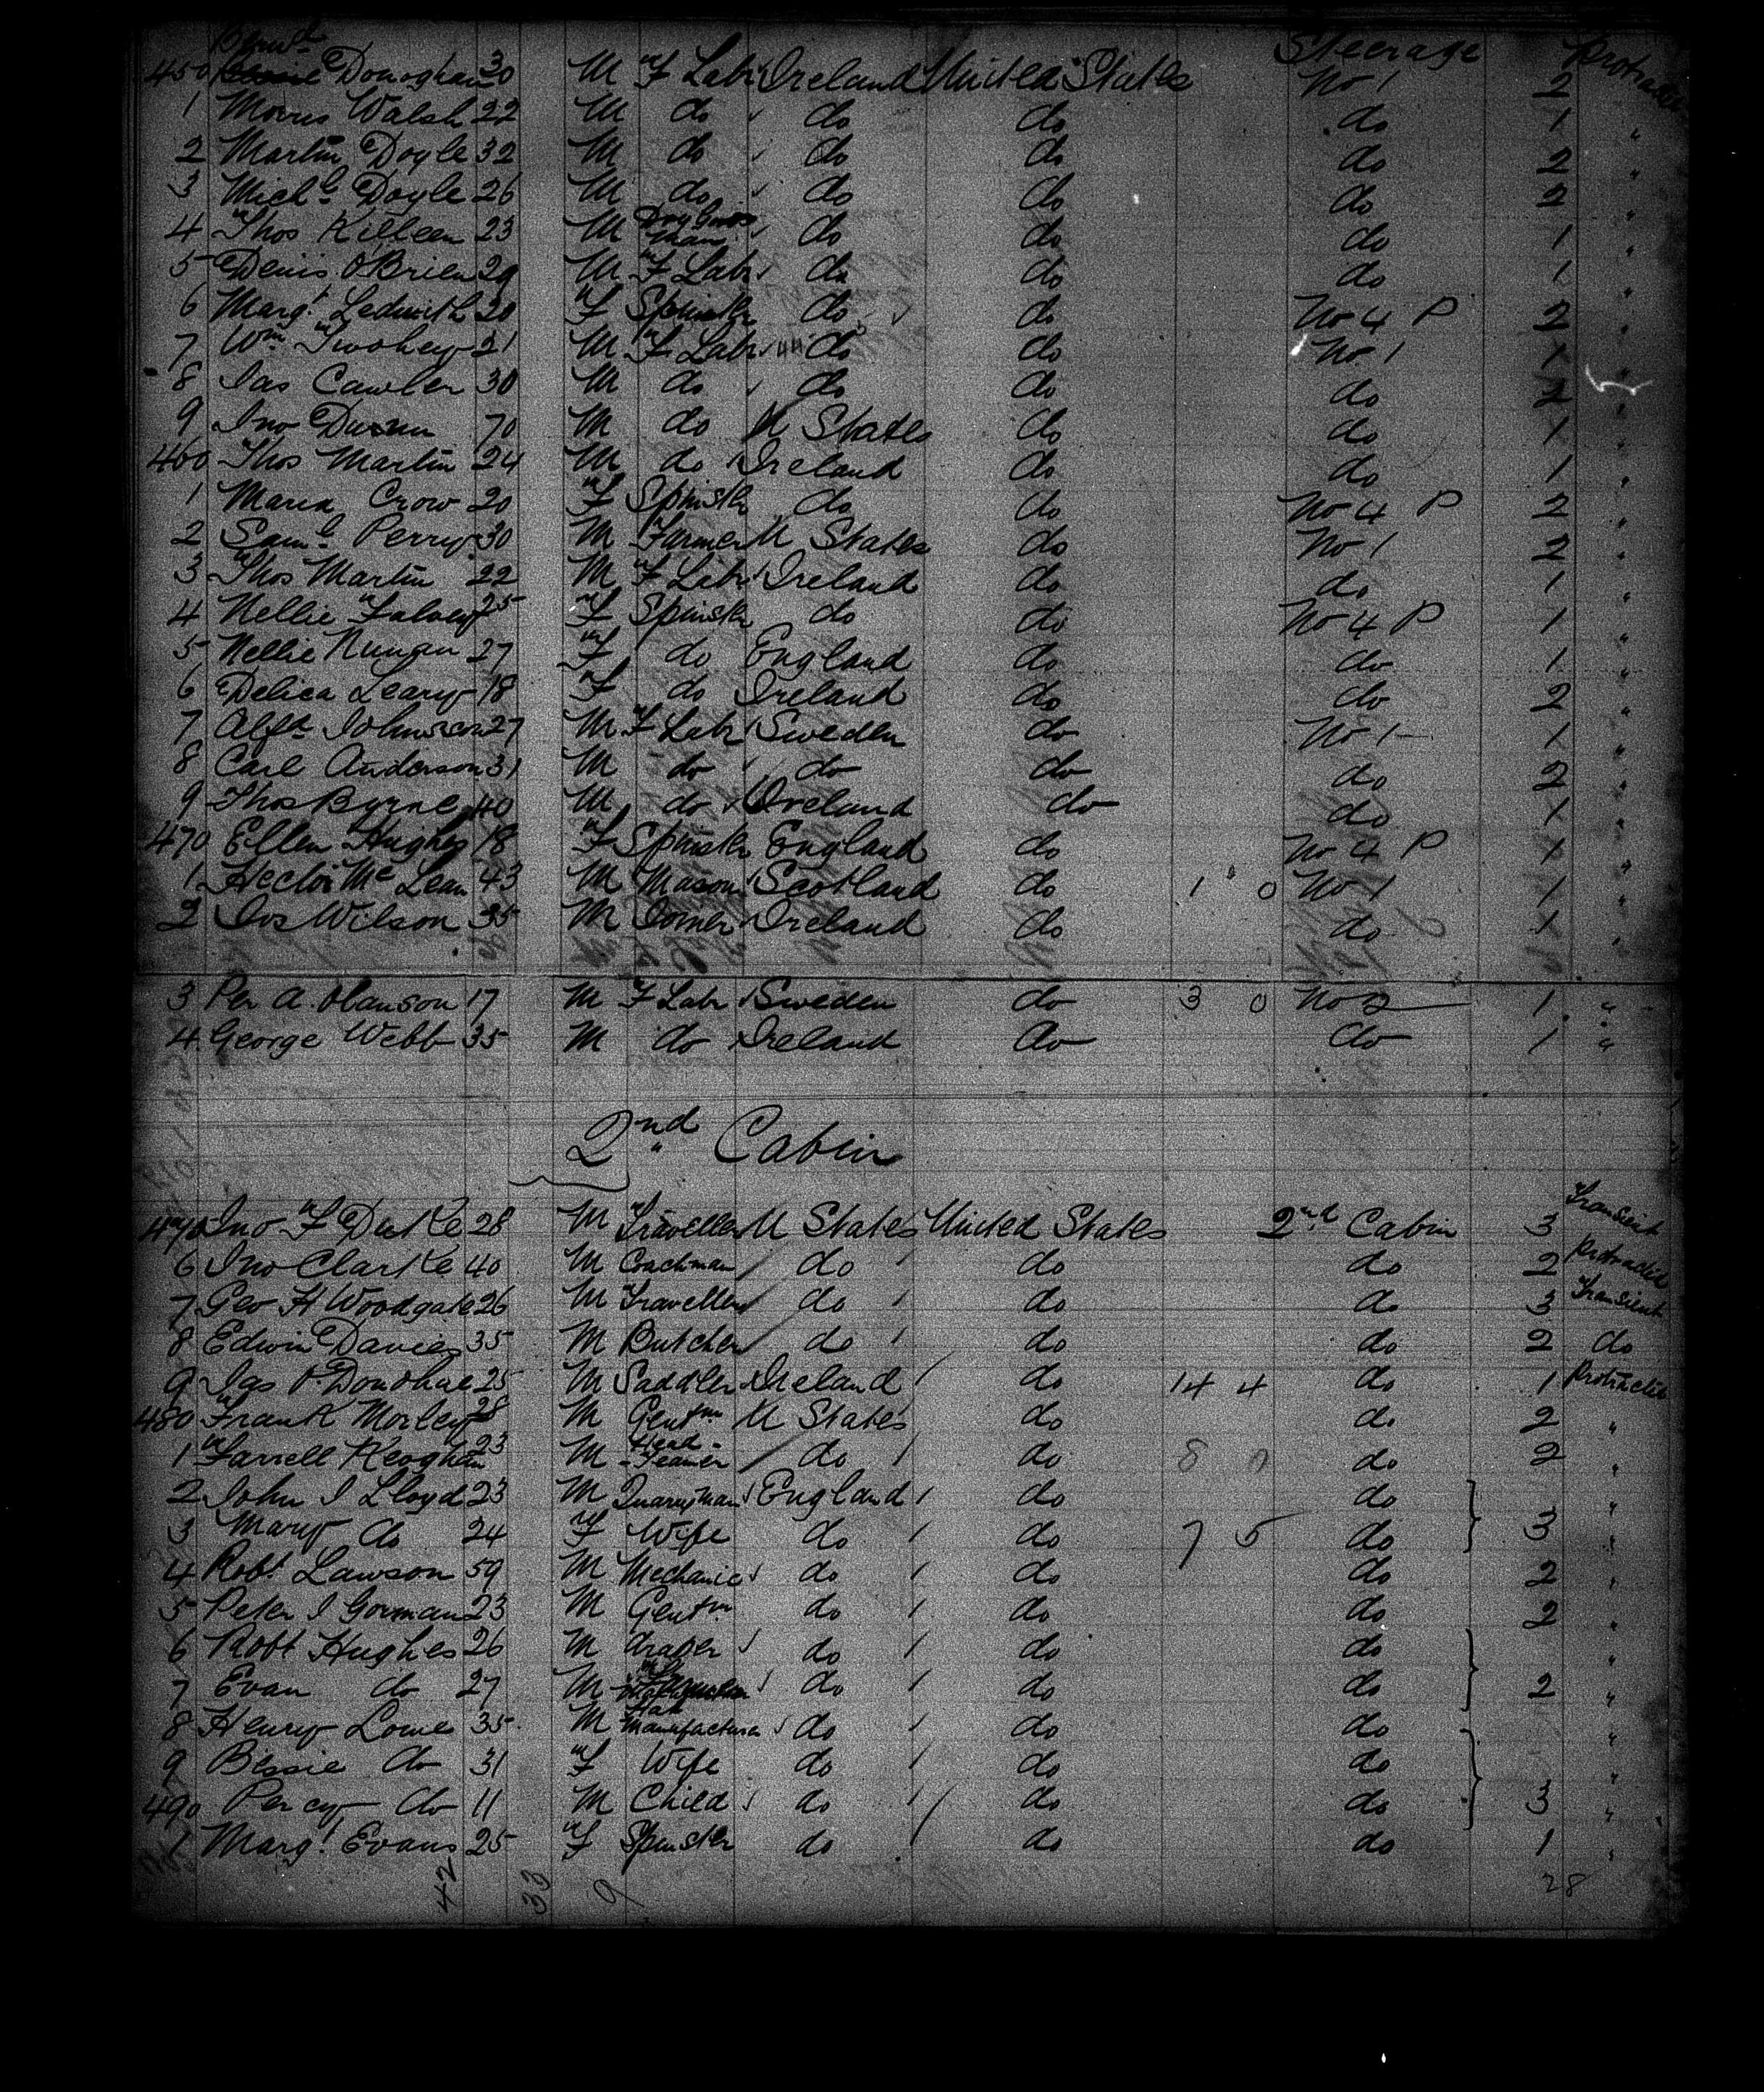 Bernd Steerage Protracted
450 Donoghue 30 M F Labr Ireland United States No 1 2
1 Morris Walsh 22 M do do do do 1 "
2 Martin Doyle 32 M do do do do 2 "
3 Michl Doyle 26 M do do do do 2 "
4 Thos Killeen 23 M man do do do 1 "
5 Denis O'Brien 29 M F Labr do do do 1 "
6 Margt Ledwith 20 F Spinstr do do No 4 P 2 "
7 Wm Twohey 21 M F Labr do do No 1 1 "
8 Jas Cawler 30 M do do do do 2 "
9 Jno 70 M do U States do do 1 "
460 Thos Martin 24 M do Ireland do do 1 "
1 Maria Crow 20 F Spinstr do do No 4 P 2 "
2 Saml Perry 30 M Farmer U States do No 1 2 "
3 Thos Martin 22 M F Labr Ireland do do 1 "
4 Nellie Falvey 25 F Spinstr do do No 4 P 1 "
5 Nellie Nunan 27 F do England do do 1 "
6 Delica Leary 18 F do Ireland do do 2 "
7 Alfd Johnson 27 M F Labr Sweden do No 1 1 "
8 Carl Anderson 31 M do do do do 2 "
9 Thos Byrne 40 M do Ireland do do 1 "
470 Ellen Hughes 18 F Spinstr England do No 4 P 1 "
1 Hector Mc Lean 43 M Mason Scotland do 1 " 0 No 1 1 "
2 Jos Wilson 35 M Joiner Ireland do do 1 "
3 Per A. Hanson 17 M F Labr Sweden do 3 0 No 2 1 "
4 George Webb 35 M do Ireland do do 1 "
2nd Cabin
Jno F Duke 28 M Traveller U States United States 2nd Cabin 3 Transient
6 Jno Clarke 40 M Coachman do do do 2 Protracted
7 Geo H Woodgate 26 M Traveller do do do 3 Transient
8 Edwin Davies 35 M Butcher do do do 2 do
9 Jas O'Donohue 25 M Saddler Ireland do 14 4 do 1 Protracted
480 Frank Morley 28 M Gentm U States do do 2 "
1 Farrell Keoghan 23 M do do 8 0 do 2 "
2 John J Lloyd 23 M Quarryman England do do
3 Mary do 24 F Wife do do 7 5 do 3 "
4 Robt Lawson 59 M Mechanic do do do 2 "
5 Peter J Gorman 23 M Gentm do do do 2 "
6 Robt Hughes 26 M draper do do do "
7 Evan do 27 M do do do 2 "
8 Henry Lowe 35 M Hat Manufacturer do do do "
9 Bessie do 31 F Wife do do do "
490 Percy do 11 M Child do do do 3 "
1 Margt Evans 25 F Spinster do do do 1 "
42 33 9 28